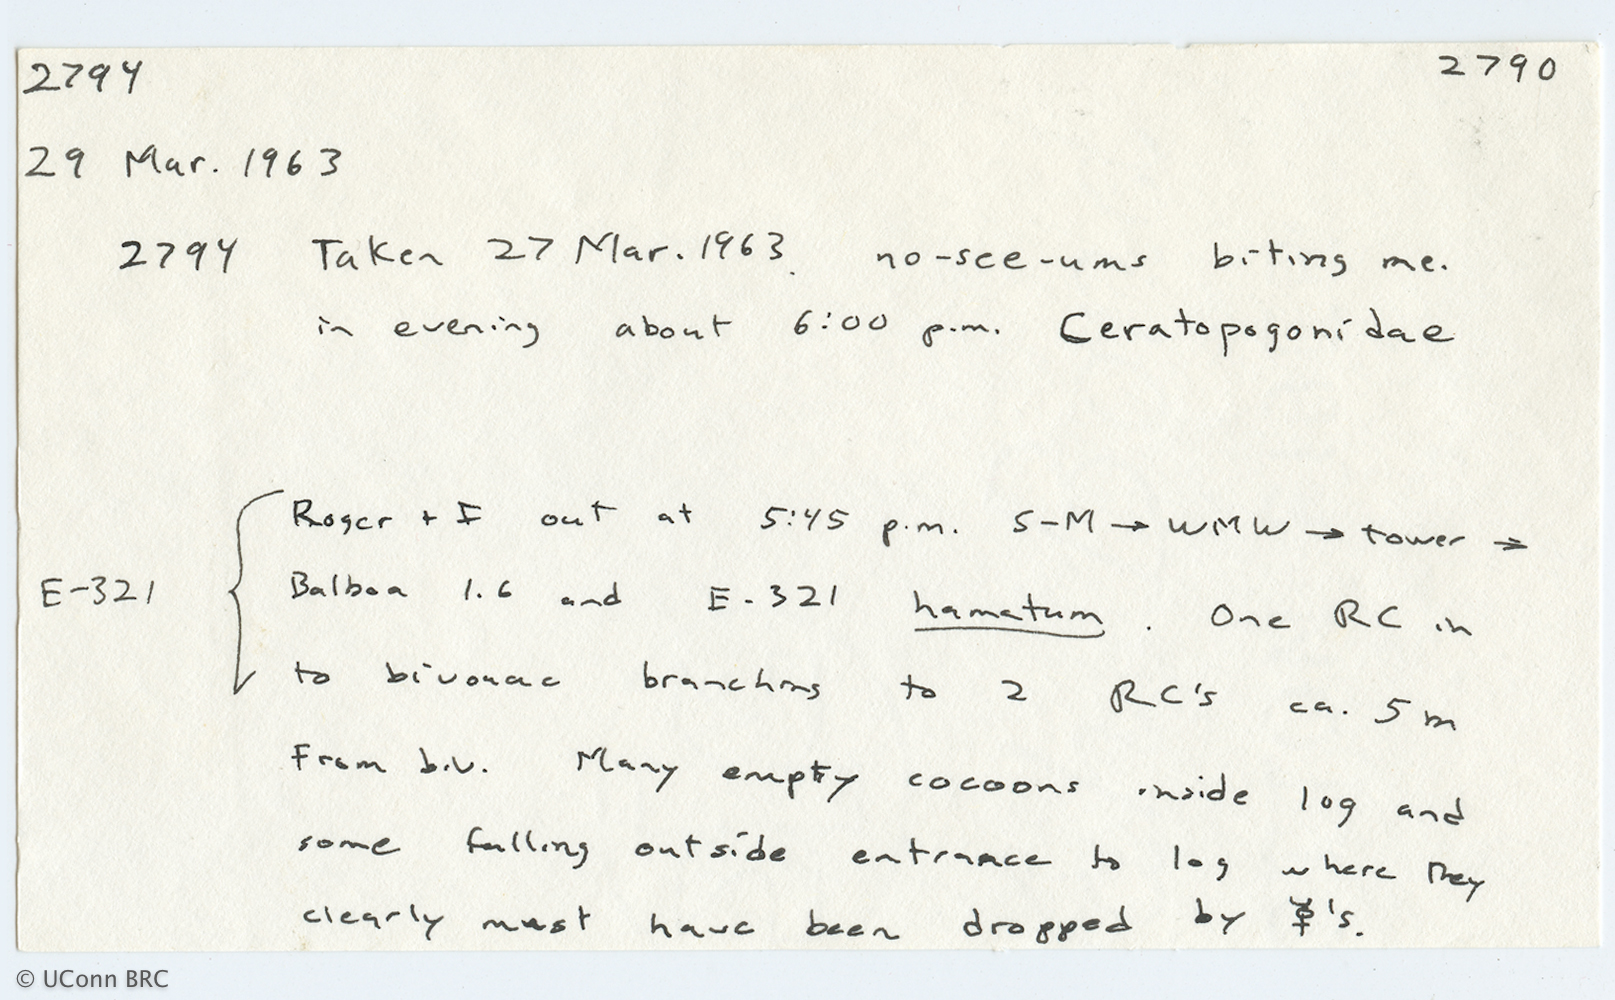 2794 2790
29 Mar. 1963
2794 Taken 27 Mar. 1963. no-see-ums biting me.
in evening about 6:00 p.m. Ceratopogonidae
Roger + I out at 5:45 p.m. S-M → WMW → tower →
E-321 Balboa 1.6 and E-321 hamatum. One RC in
to bivouac branching to 2 RC's ca. 5 m
From biv. Many empty cocoons inside log and
some falling outside entrance to log where they
clearly must have been dropped by 's.
© UConn BRC